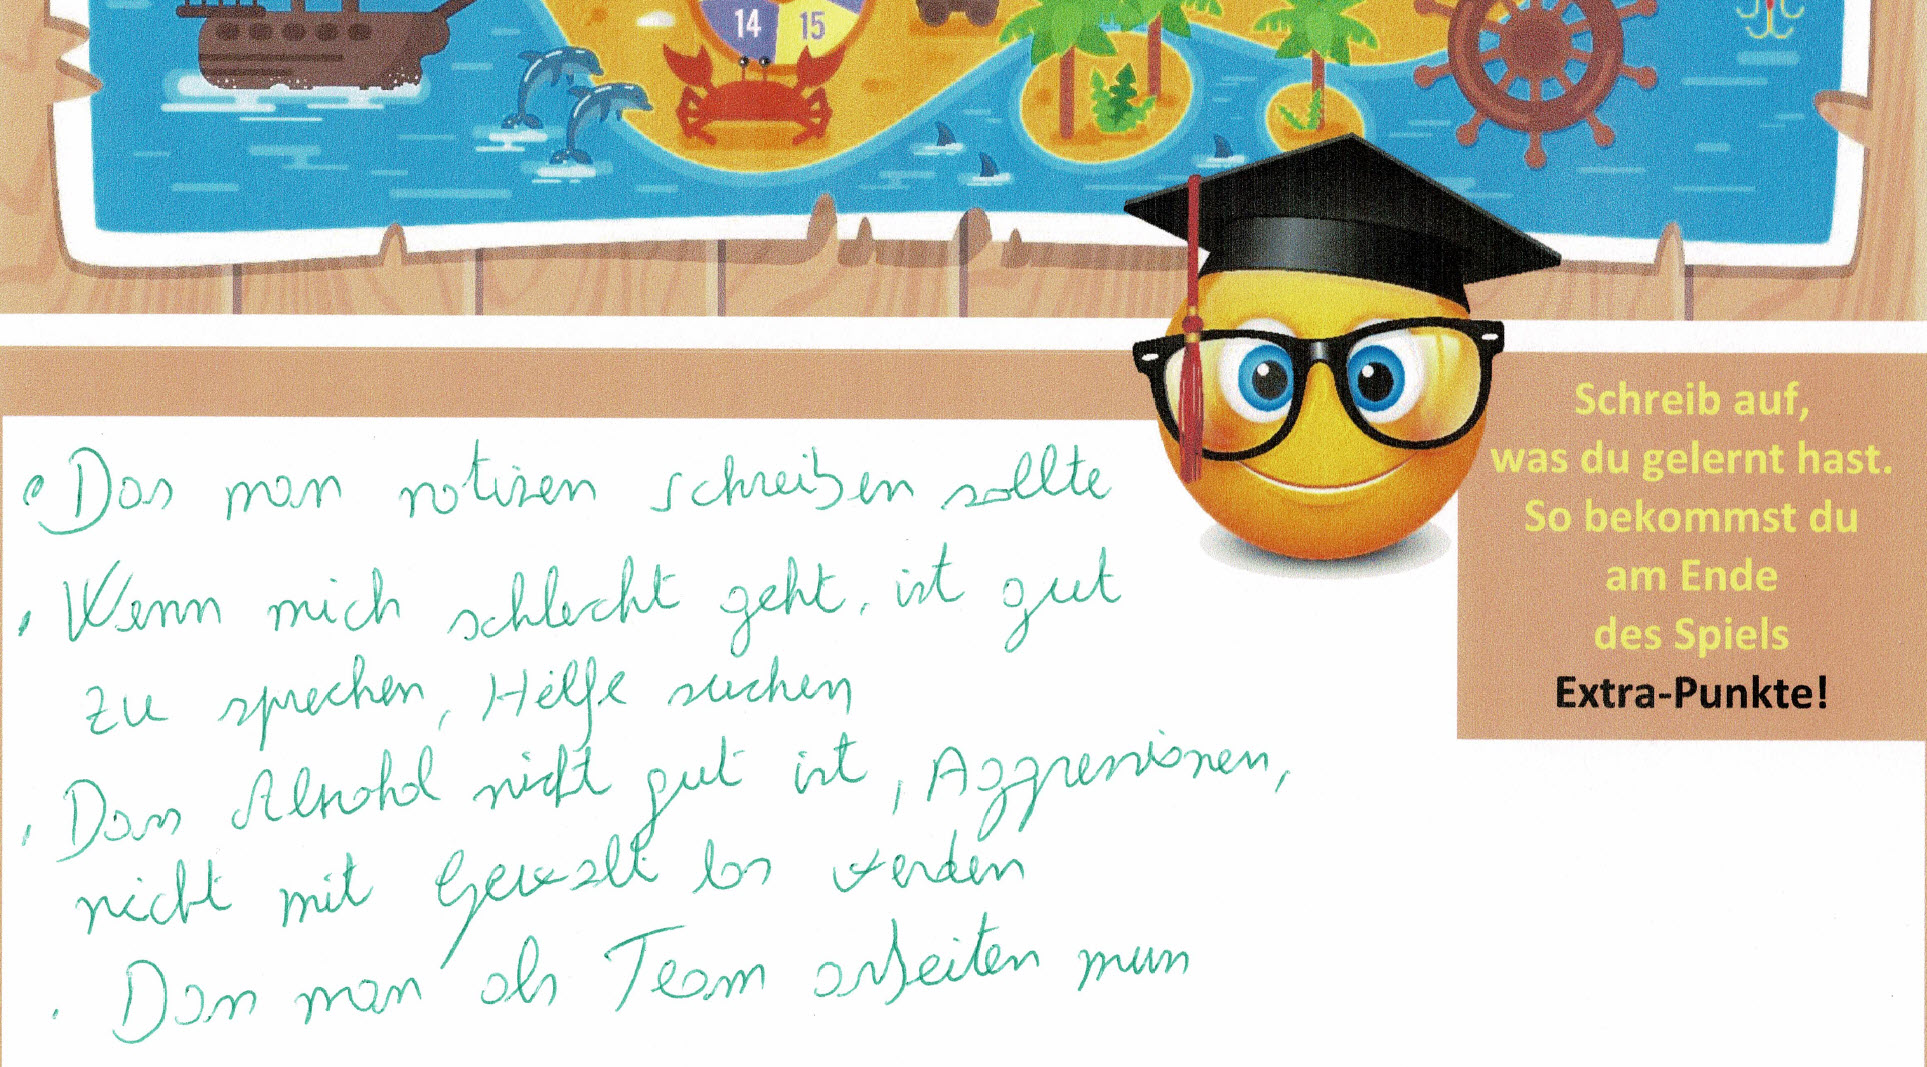 14 15
Schreib auf,
was du gelernt hast.
So bekommst du
am Ende
des Spiels
Extra-Punkte!
• Das man notizen schreiben sollte
• Wenn mich schlecht geht, ist gut
zu sprechen, Hilfe suchen
• Dass Alkohol nicht gut ist, Aggressionen,
nicht mit Gewalt los werden
• Dass man als Team arbeiten muss